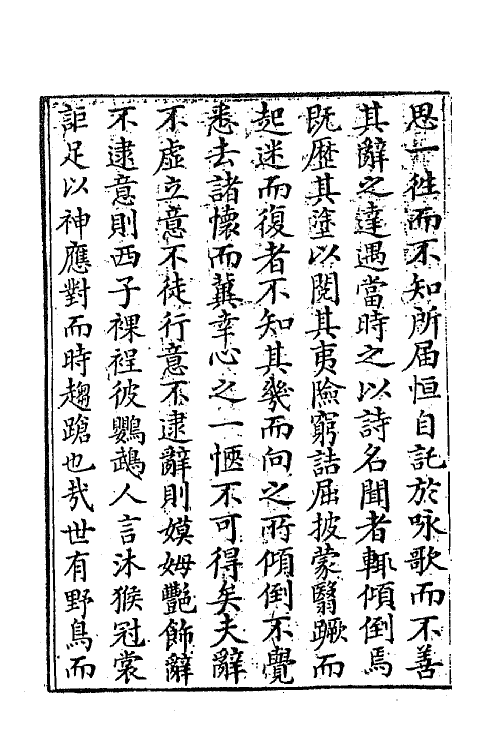 思一徃而不知所届恒自託於咏歌而不善
其辭之達遇當時之以詩名聞者輙傾倒焉
既歴其塗以閱其夷險窮詰屈披蒙翳蹶而
起迷而復者不知其幾而向之所傾倒不覺
悉去諸懷而冀幸心之一愜不可得矣夫辭
不虚立意不徒行意不逮辭則嫫姆艷飾辭
不逮意則西子裸裎彼鸚鵡人言沐猴冠裳
詎足以神應對而時趨蹌也㢤世有野鳥而